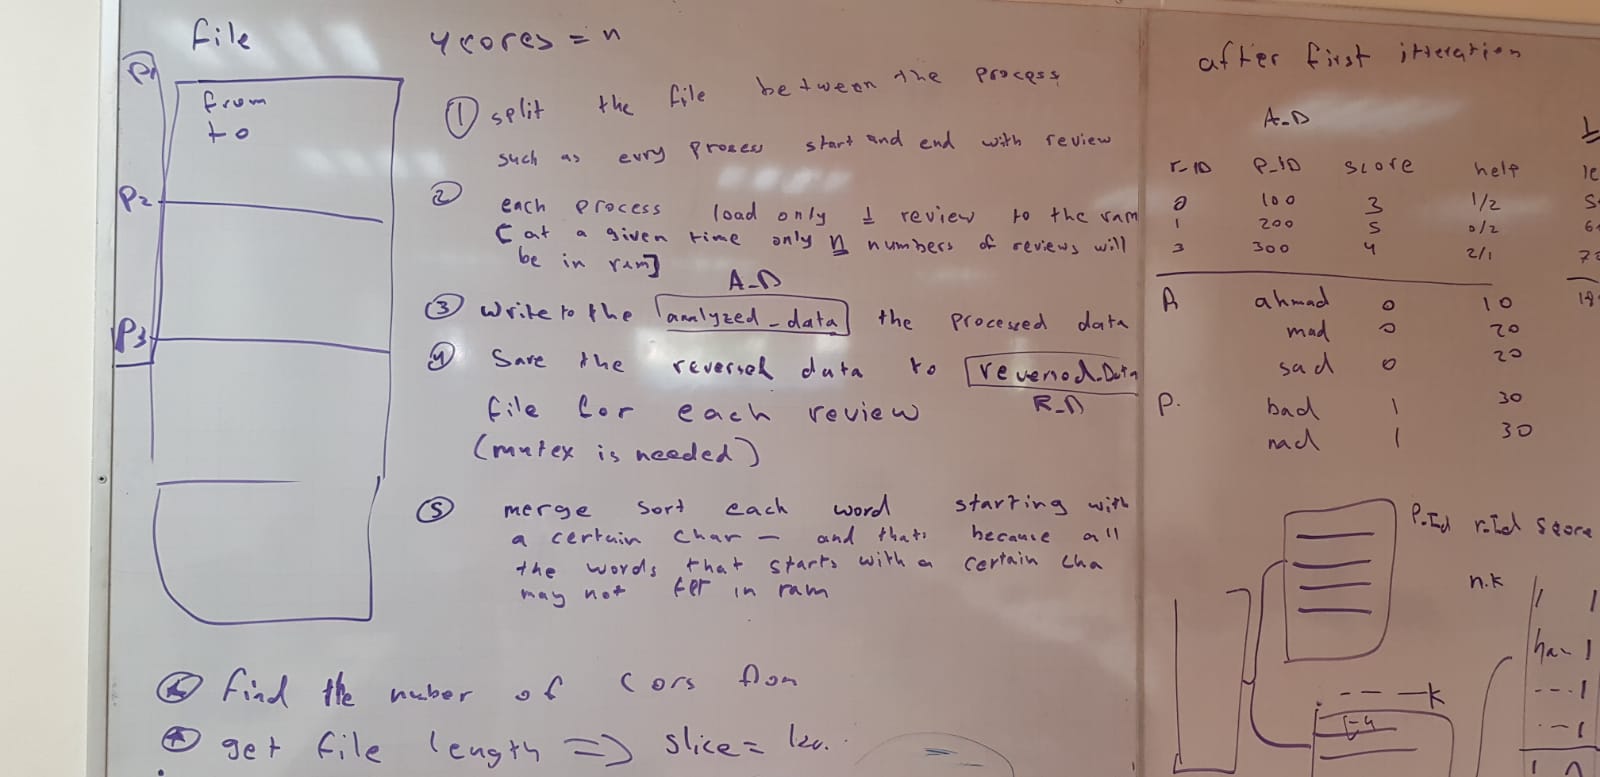 file
4 cores = n
P1
from
to
P2
P3
① split the file between the process
such as evry proses start and end with review
② each process load only 1 review to the ram
[at a given time only n numbers of reviews will
be in ram]
A_D
③ write to the analyzed_data the processed data
④ Save the reversed data to reversed_Data
file for each review
R_D
(mutex is needed)
⑤ merge sort each word starting with
a certain char – and thats because all
the words that starts with a certain cha
may not fit in ram
find the nuber of cors
get file length => slice =
after first itteration
A_D
r_ID P_ID score help
0 100 3 1/2
1 200 5 0/2
3 300 4 2/1
A ahmad 0 10
mad 0 20
sad 0 20
P. bad 1 30
nad 1 30
P.Id r.Id score
n.k
--- k